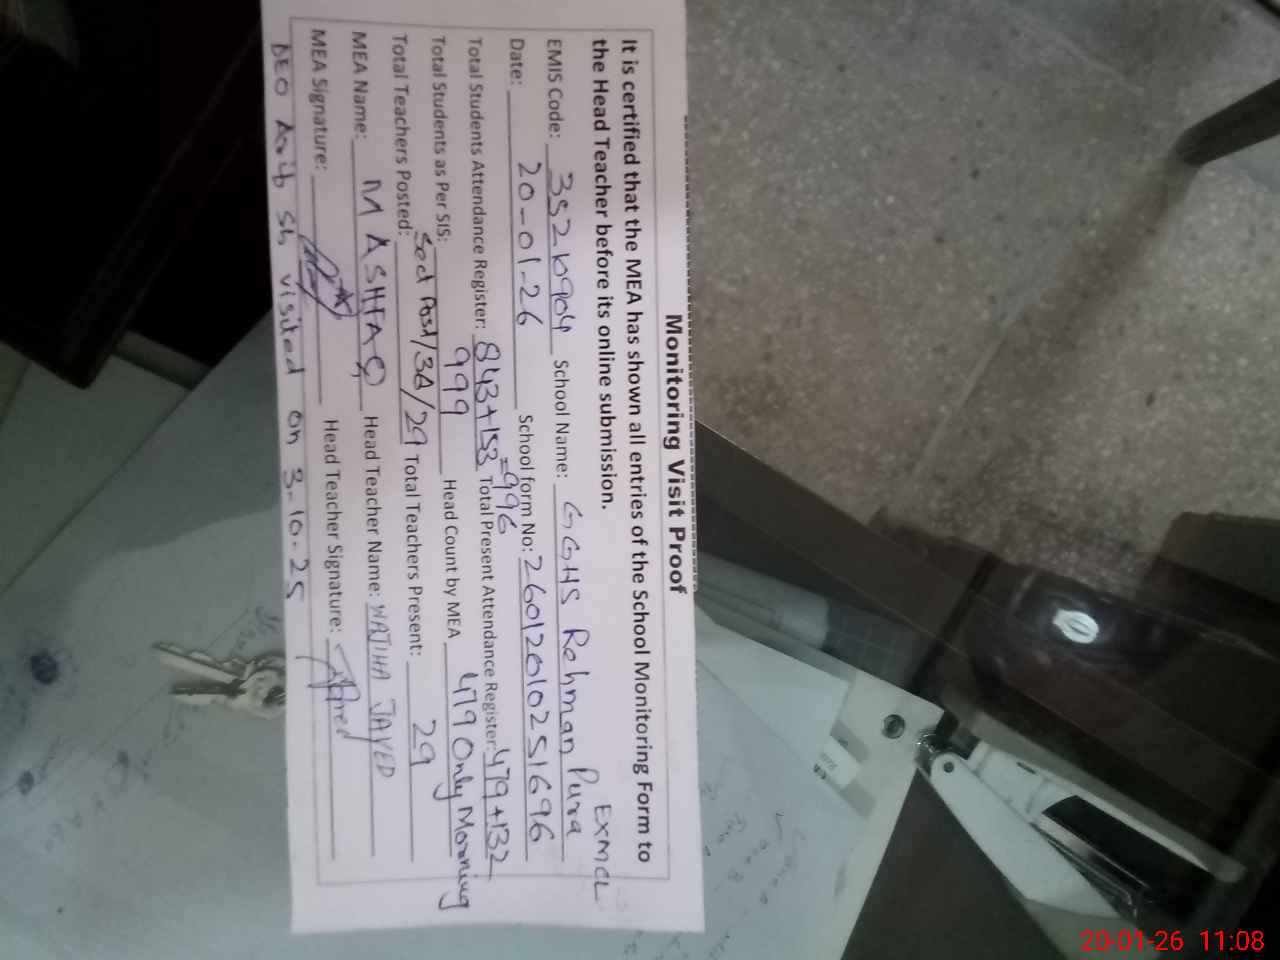 Monitoring Visit Proof
It is certified that the MEA has shown all entries of the School Monitoring Form to
the Head Teacher before its online submission.
EMIS Code: 3520904 School Name: GGHS Rehman Pura EXMCL
Date: 20-01-26 School form No: 26012010251696
Total Students Attendance Register: 843+153 =996 Total Present Attendance Register: 479+132
Total Students as Per SIS: 999 Head Count by MEA 479 Only Morning
Total Teachers Posted: Sed Post/38/29 Total Teachers Present: 29
MEA Name: M ASHFAQ Head Teacher Name: WAJIHA JAVED
MEA Signature: Head Teacher Signature:
DEO visited on 3-10-25
20-01-26 11:08